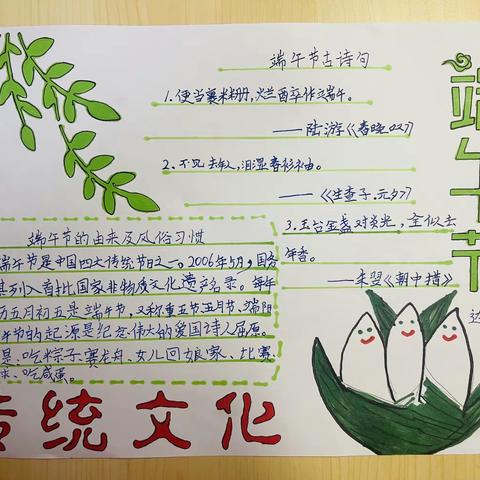 端午节古诗句
1.便当裹米粽,兰酒卒作立端午。
——陆游《春晚叹》
2.不见去年人,泪湿春衫袖。
——《生查子.元夕》
3.玉台金盏对炎光,全似去
年香。
——朱翌《朝中措》
端午节的由来及风俗习惯
端午节是中国四大传统节日之一。2006年5月,国务
列入首批国家非物质文化遗产名录。每年
历五月初五是端午节,又称重五节五月节、端阳
午节的起源是纪念伟大的爱国诗人屈原。
是、吃粽子、赛龙舟、女儿回娘家、比赛
、吃咸蛋。
端午节
边
传统文化